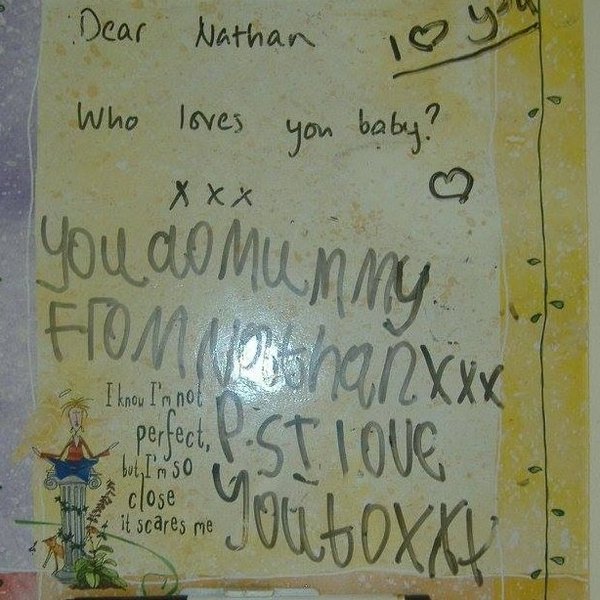 Dear Nathan
I ♡ you
Who loves you baby?
x x x
You do Mummy
From Nathan xxx
I know I'm not
perfect,
but I'm so
close
it scares me
P.ST I love
You to xxx